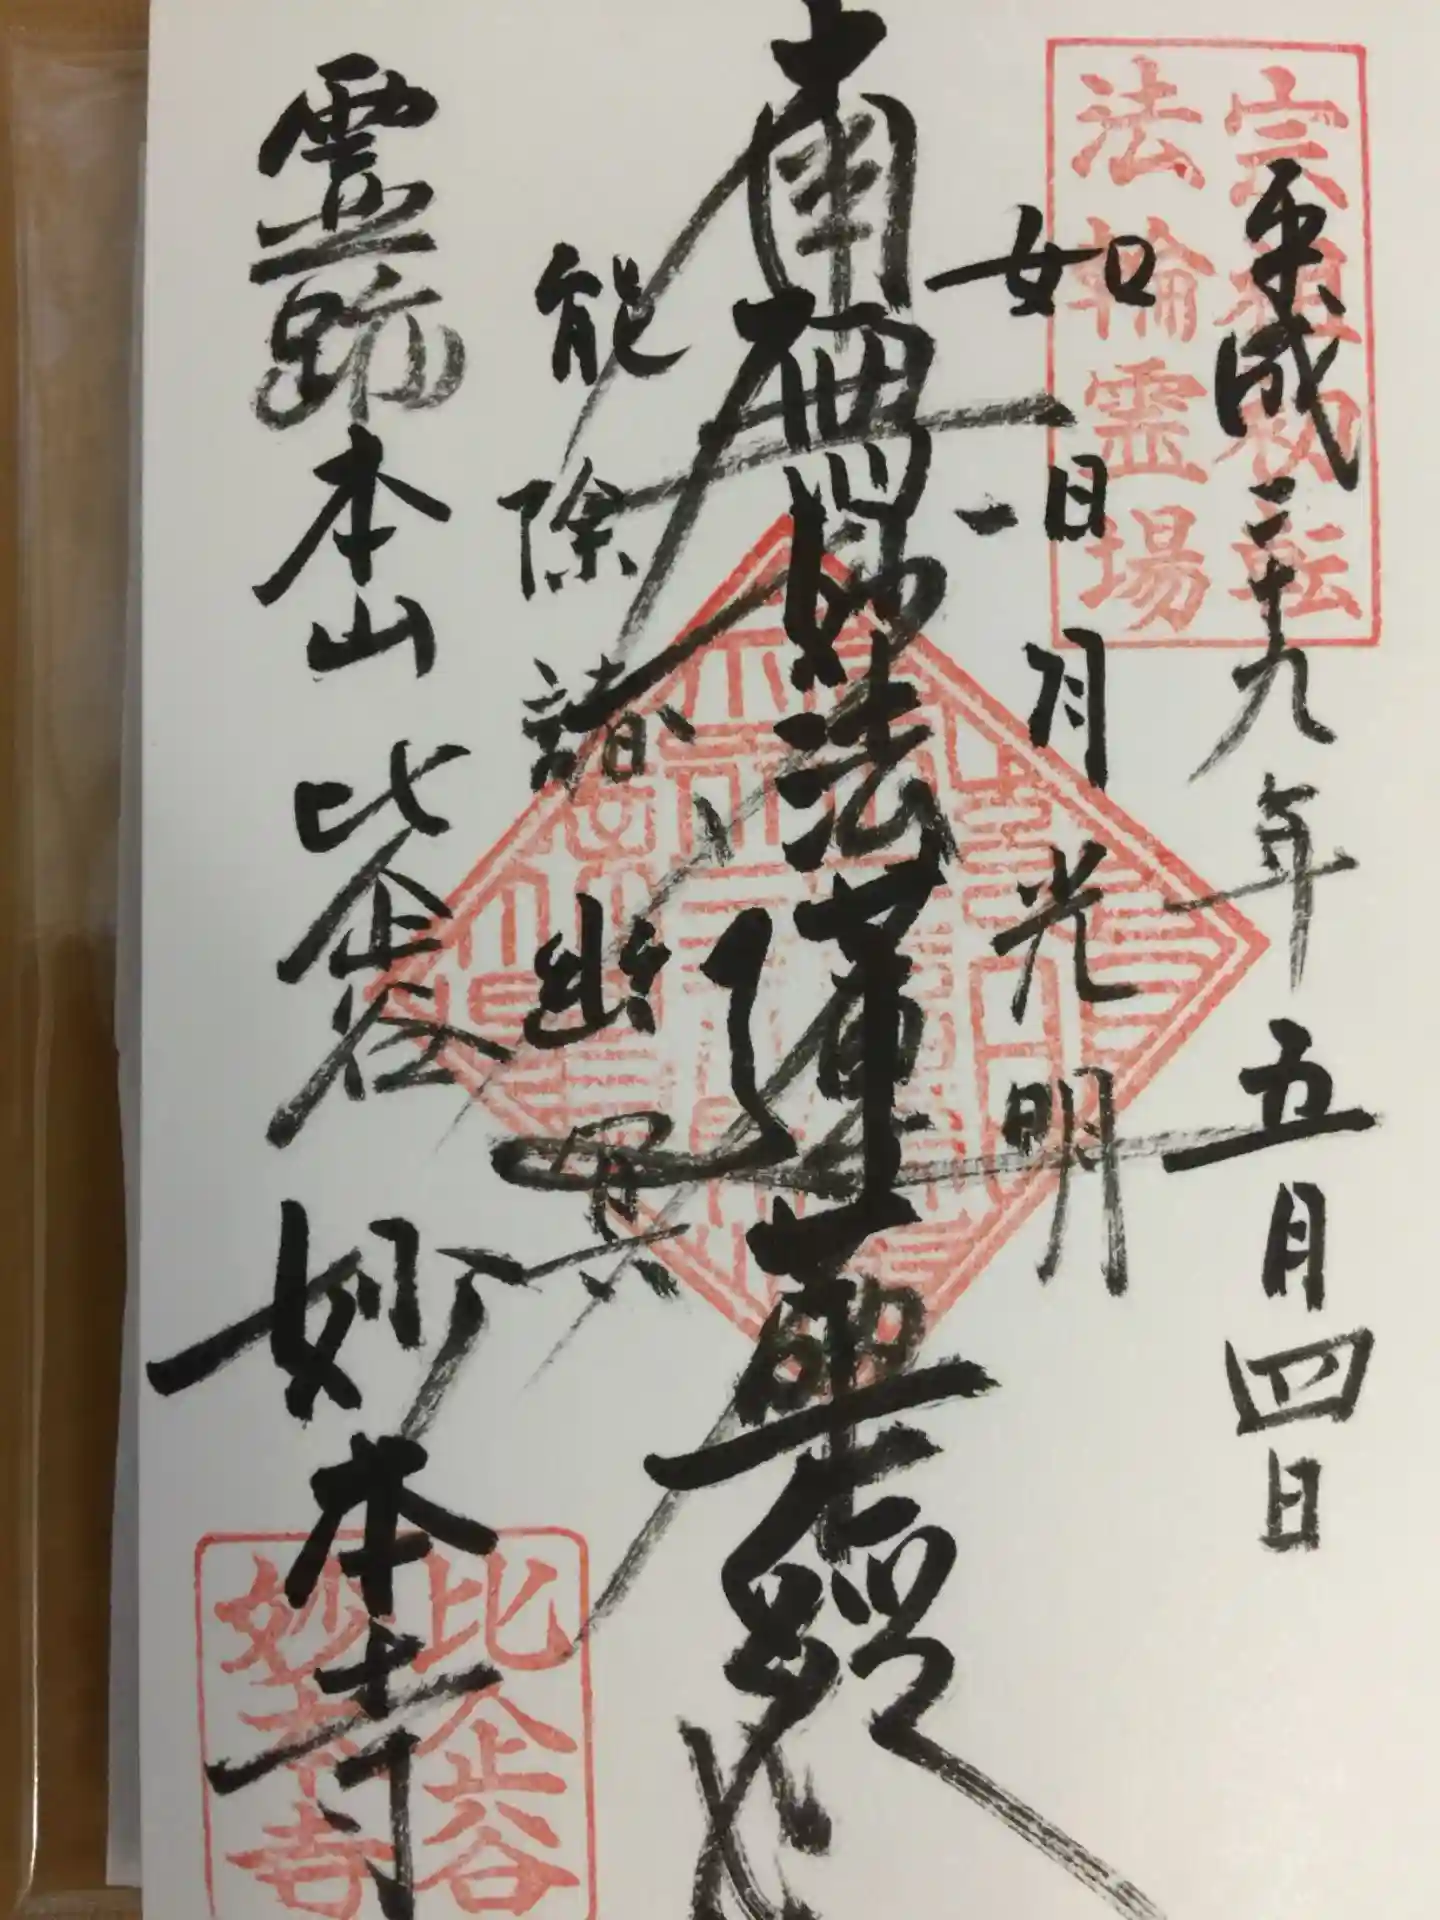 平成二十九年五月四日
宗祖初転
法輪霊場
如日月光明
南無妙法蓮華経
能除諸幽冥
霊跡本山 比企谷 妙本寺
比企谷
妙本寺